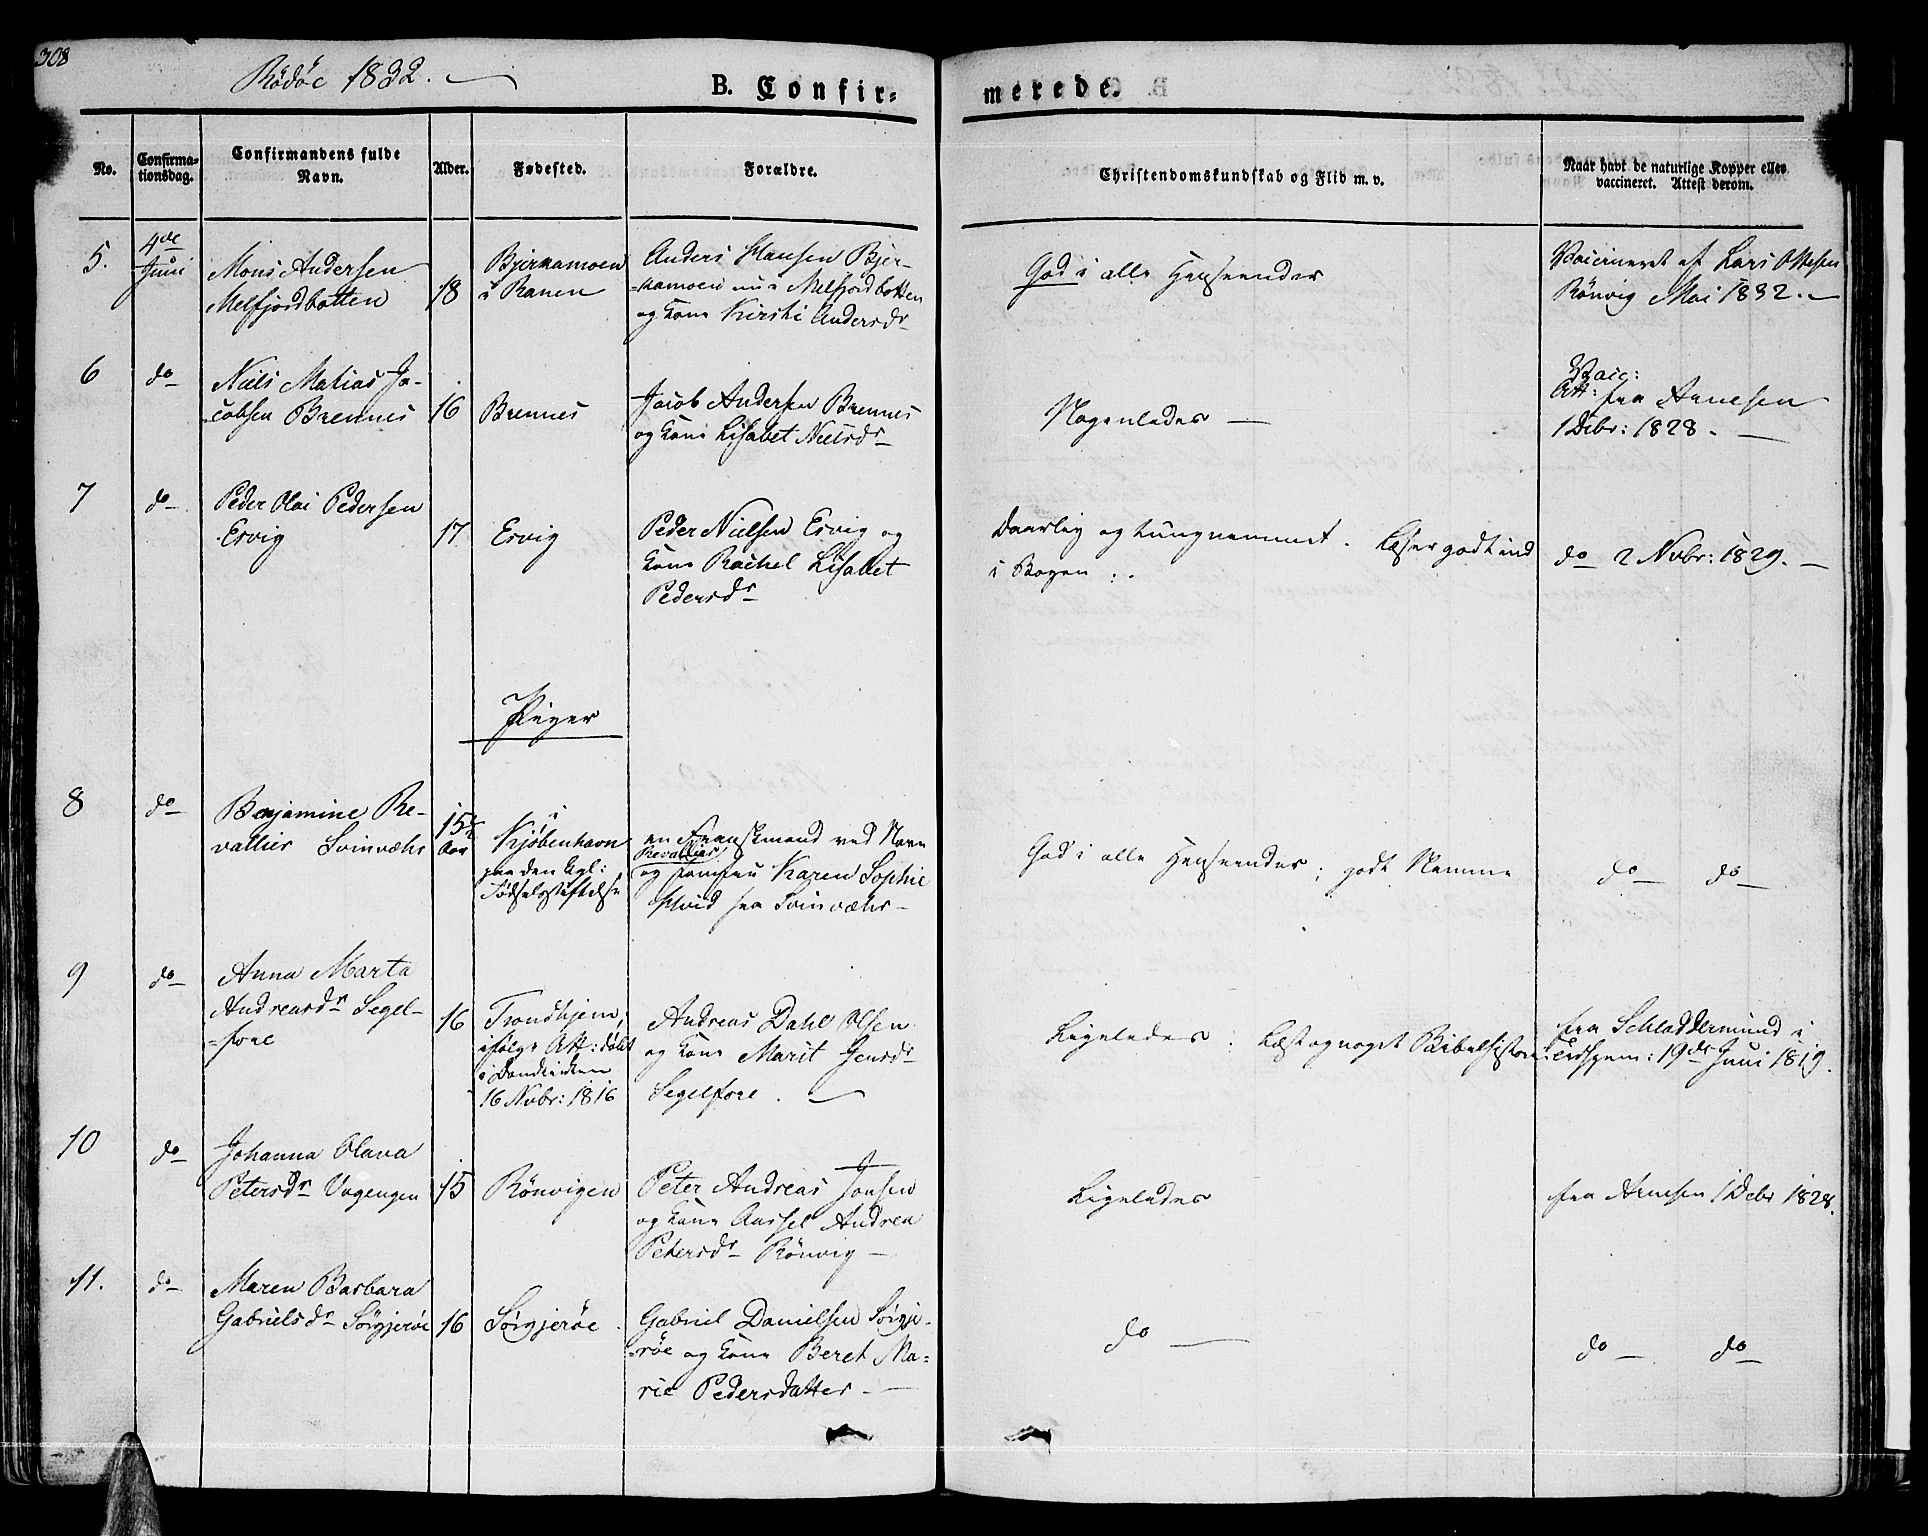 308
Rödöe 1832.
B. Confir=
merede.
No.
Confirma-
tionsdag.
Confirmandens fulde
Navn.
Alder.
Fødested.
Forældre.
Christendomskundskab og Flid m. v.
Naar havt de naturlige Kopper eller
vaccineret. Attest derom.
5.
4de
Juni
Mons Andersen
Melfjordbotten
18
Bjernamoen
i Ranen
Anders Hansen Bjer-
namoen nu i Melfjordbotten
og Kone Kirsti Andersdr
God i alle Henseender
Vaccineret af Lars Ottesen
Rönvig Mai 1832.
6
do
Niels Matias Ja-
cobsen Brennes
16
Brennes
Jacob Andersen Brennes
og Kone Lisabet Nielsdr
Nogenledes
Vacc:
Att: fra Arnesen
1 Decbr: 1828.
7
do
Peder Olai Pedersen
Esvig
17
Esvig
Peder Nielsen Esvig og
Kone Rachel Lisabet
Pedersdr
Daarlig og tungnemmet. Læser godt ind
i Bogen.
do 2 Novbr: 1829.
Piger
8
do
Benjamine Re-
vallier Svinvæhr
15½
Aar
i
Kjøbenhavn
paa den kgl:
Fødselsstiftelse
en Franskmand ved Navn
Revallier
og Jomfru Karen Sophie
Hvid fra Svinvæhr
God i alle Henseender; godt Nemme
do do
9
do
Anna Marta
Andreasdr Segel-
fore
16
Trondhjem,
ifølge Att: døbt
i Domkirken
16 Novbr: 1816
Andreas Dahl Olsen
og Kone Marit Jensdr
Segelfore.
Ligeledes: Læst og noget Bibelhistorie
fra Schladdermund i
Trdhjem: 19de Juni 1819.
10
do
Johanna Olava
Petersdr Vagengen
15
Rönvigen
Peter Andreas Jonsen
og Kone Aassel Andrea
Petersdr Rönvig
Ligeledes
fra Arnesen 1 Decbr 1828.
11.
do
Maren Barbara
Gabrielsdr Sörgjeröe
16
Sörgjeröe.
Gabriel Danielsen Sörgje-
röe og Kone Beret Ma-
rie Pedersdatter
do
do do